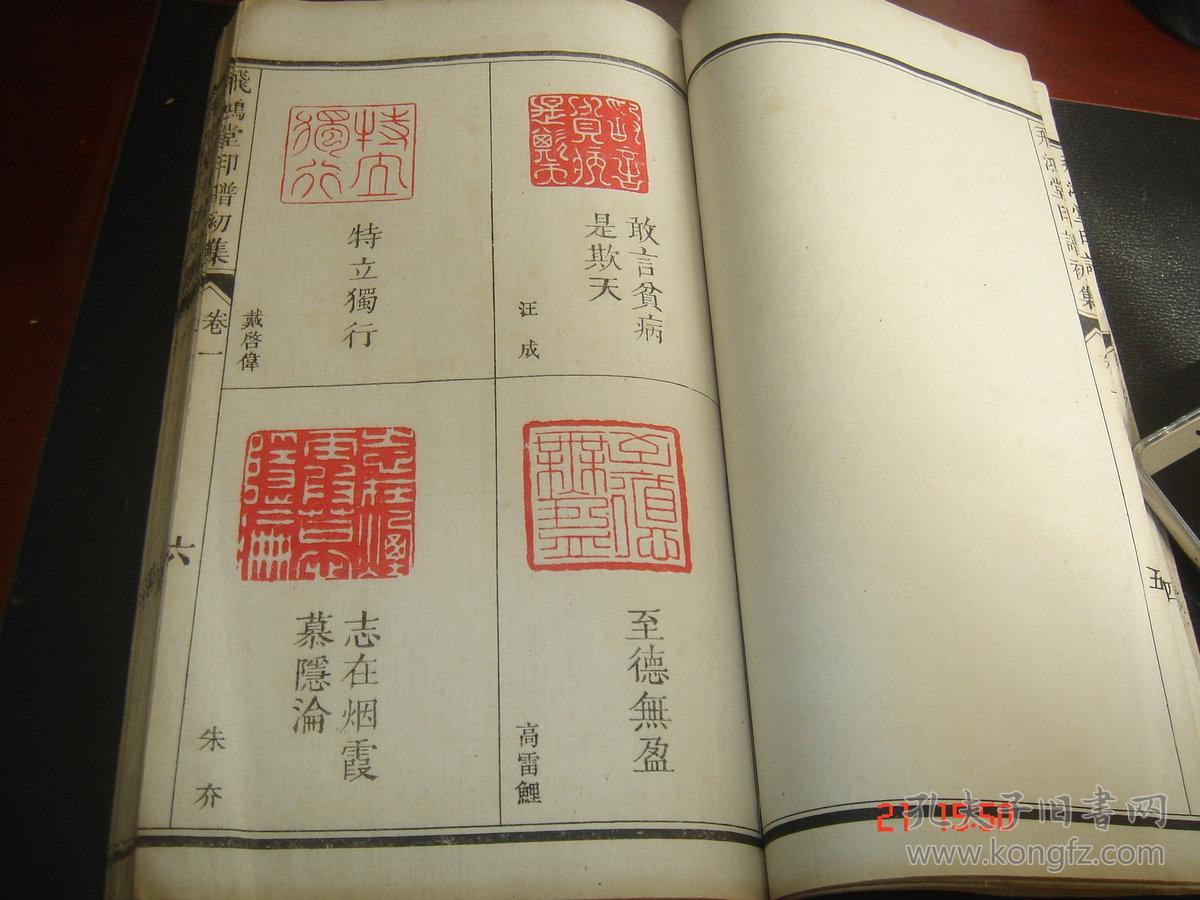 敢言貧病
是欺天
汪成
特立獨行
戴啓偉
至德無盈
高雷鯉
志在烟霞
慕隱淪
朱夰
飛鴻堂印譜初集
卷一
六
五
孔夫子旧书网
www.kongfz.com